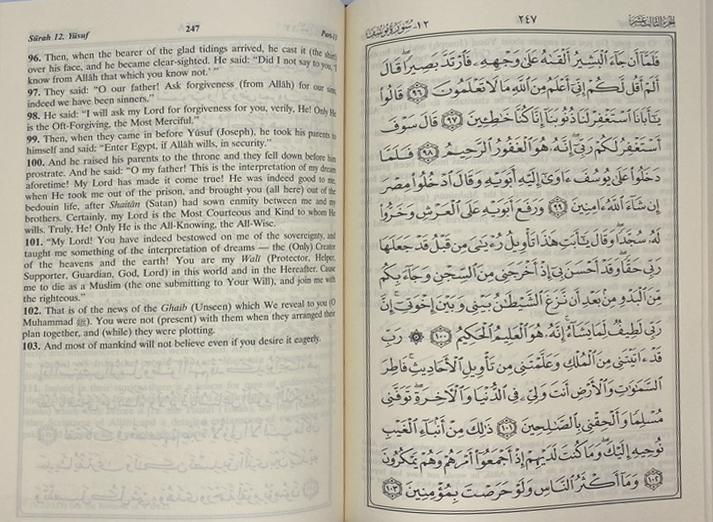 Sûrah 12. Yûsuf
247
Part-13
96. Then, when the bearer of the glad tidings arrived, he cast it (the shirt)
over his face, and he became clear-sighted. He said: "Did I not say to you, 'I
know from Allâh that which you know not.' "
97. They said: "O our father! Ask forgiveness (from Allâh) for our sins,
indeed we have been sinners."
98. He said: "I will ask my Lord for forgiveness for you, verily, He! Only He
is the Oft-Forgiving, the Most Merciful."
99. Then, when they came in before Yûsuf (Joseph), he took his parents to
himself and said: "Enter Egypt, if Allâh wills, in security."
100. And he raised his parents to the throne and they fell down before him
prostrate. And he said: "O my father! This is the interpretation of my dream
aforetime! My Lord has made it come true! He was indeed good to me,
when He took me out of the prison, and brought you (all here) out of the
bedouin life, after Shaitân (Satan) had sown enmity between me and my
brothers. Certainly, my Lord is the Most Courteous and Kind to whom He
wills. Truly, He! Only He is the All-Knowing, the All-Wise.
101. "My Lord! You have indeed bestowed on me of the sovereignty, and
taught me something of the interpretation of dreams — the (Only) Creator
of the heavens and the earth! You are my Wali (Protector, Helper,
Supporter, Guardian, God, Lord) in this world and in the Hereafter. Cause
me to die as a Muslim (the one submitting to Your Will), and join me with
the righteous."
102. That is of the news of the Ghaib (Unseen) which We reveal to you (O
Muhammad ﷺ). You were not (present) with them when they arranged their
plan together, and (while) they were plotting.
103. And most of mankind will not believe even if you desire it eagerly.
١٢- سورة يوسف
٢٤٧
الجزء الثالث عشر
فَلَمَّآ أَن جَآءَ ٱلْبَشِيرُ أَلْقَىٰهُ عَلَىٰ وَجْهِهِۦ فَٱرْتَدَّ بَصِيرًا ۖ قَالَ
أَلَمْ أَقُل لَّكُمْ إِنِّىٓ أَعْلَمُ مِنَ ٱللَّهِ مَا لَا تَعْلَمُونَ ٩٦ قَالُوا۟
يَـٰٓأَبَانَا ٱسْتَغْفِرْ لَنَا ذُنُوبَنَآ إِنَّا كُنَّا خَـٰطِـِٔينَ ٩٧ قَالَ سَوْفَ
أَسْتَغْفِرُ لَكُمْ رَبِّىٓ ۖ إِنَّهُۥ هُوَ ٱلْغَفُورُ ٱلرَّحِيمُ ٩٨ فَلَمَّا
دَخَلُوا۟ عَلَىٰ يُوسُفَ ءَاوَىٰٓ إِلَيْهِ أَبَوَيْهِ وَقَالَ ٱدْخُلُوا۟ مِصْرَ
إِن شَآءَ ٱللَّهُ ءَامِنِينَ ٩٩ وَرَفَعَ أَبَوَيْهِ عَلَى ٱلْعَرْشِ وَخَرُّوا۟
لَهُۥ سُجَّدًا ۖ وَقَالَ يَـٰٓأَبَتِ هَـٰذَا تَأْوِيلُ رُءْيَـٰىَ مِن قَبْلُ قَدْ جَعَلَهَا
رَبِّى حَقًّا ۖ وَقَدْ أَحْسَنَ بِىٓ إِذْ أَخْرَجَنِى مِنَ ٱلسِّجْنِ وَجَآءَ بِكُم
مِّنَ ٱلْبَدْوِ مِنۢ بَعْدِ أَن نَّزَغَ ٱلشَّيْطَـٰنُ بَيْنِى وَبَيْنَ إِخْوَتِىٓ ۚ إِنَّ
رَبِّى لَطِيفٌ لِّمَا يَشَآءُ ۚ إِنَّهُۥ هُوَ ٱلْعَلِيمُ ٱلْحَكِيمُ ١٠٠ ۞ رَبِّ
قَدْ ءَاتَيْتَنِى مِنَ ٱلْمُلْكِ وَعَلَّمْتَنِى مِن تَأْوِيلِ ٱلْأَحَادِيثِ ۚ فَاطِرَ
ٱلسَّمَـٰوَٰتِ وَٱلْأَرْضِ أَنتَ وَلِىِّۦ فِى ٱلدُّنْيَا وَٱلْـَٔاخِرَةِ ۖ تَوَفَّنِى
مُسْلِمًا وَأَلْحِقْنِى بِٱلصَّـٰلِحِينَ ١٠١ ذَٰلِكَ مِنْ أَنۢبَآءِ ٱلْغَيْبِ
نُوحِيهِ إِلَيْكَ ۖ وَمَا كُنتَ لَدَيْهِمْ إِذْ أَجْمَعُوٓا۟ أَمْرَهُمْ وَهُمْ يَمْكُرُونَ
١٠٢ وَمَآ أَكْثَرُ ٱلنَّاسِ وَلَوْ حَرَصْتَ بِمُؤْمِنِينَ ١٠٣